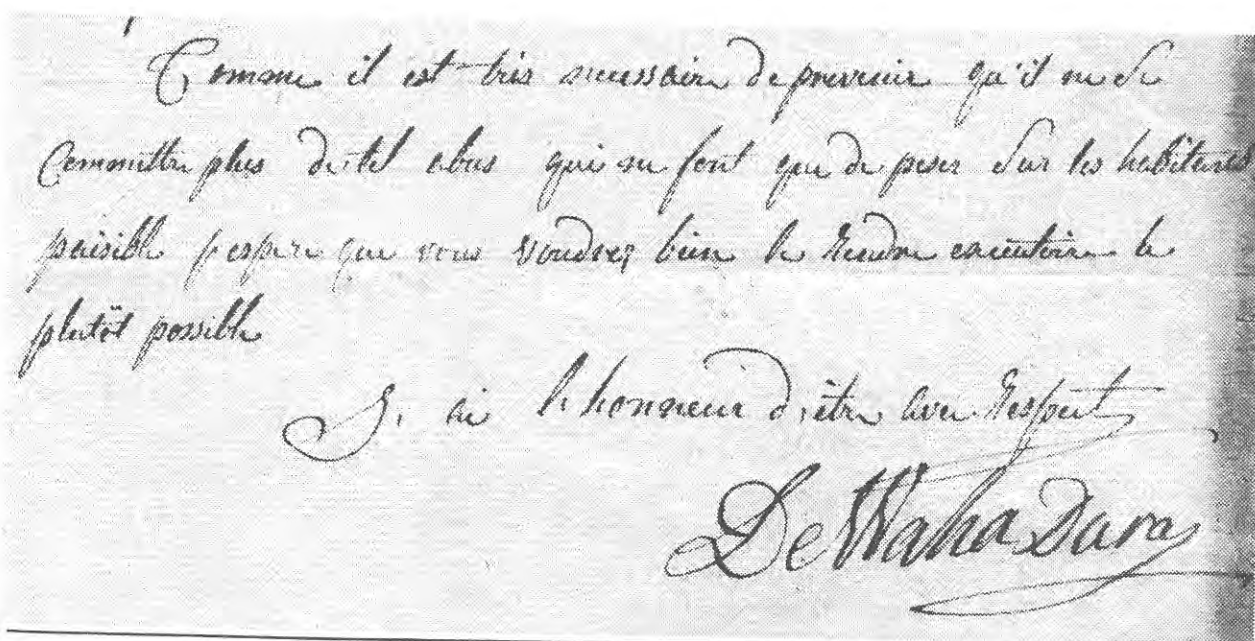 Comme il est très necessaire de prevenir qu'il ne se
Commette plus de tel abus qui ne font que de peser sur les habitants
paisible j'espere que vous voudrez bien le rendre executoire le
plutôt possible
J, ai le honneur d, être avec respect
De Waha